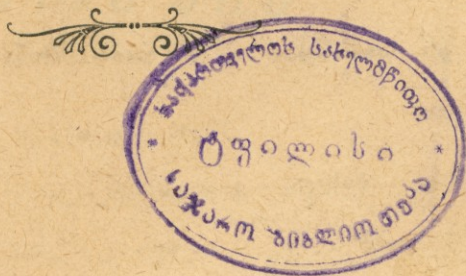 საქართველოს სახელმწიფო
* ტფილისი *
საჯარო ბიბლიოთეკა